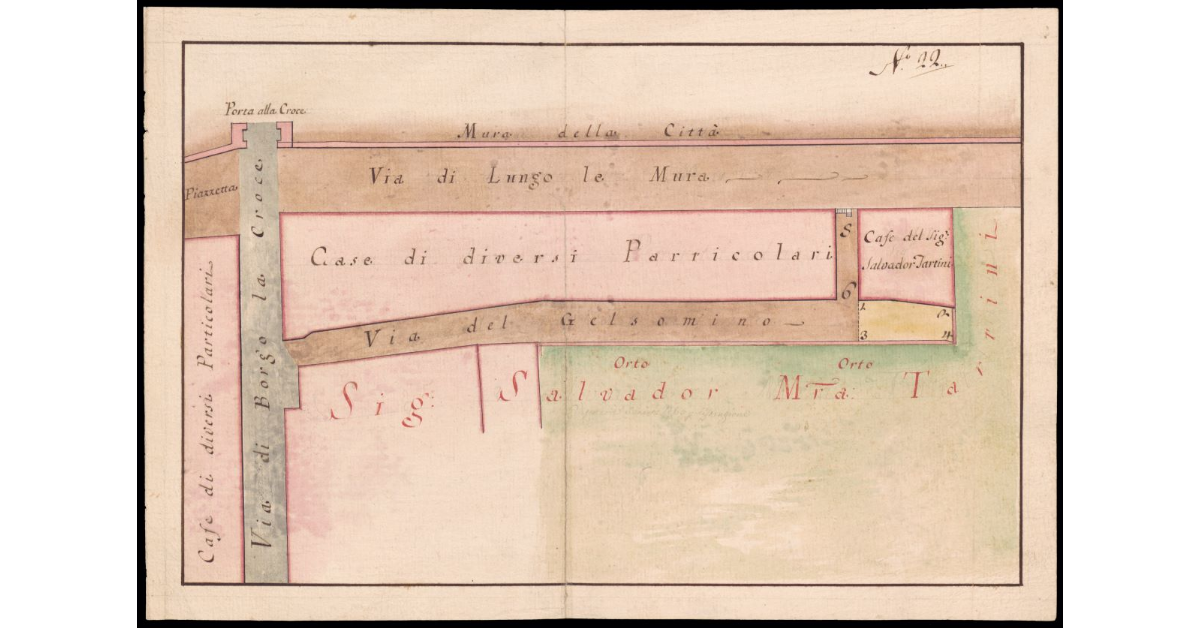 N.º 22.
Porta alla Croce
Mura della Città
Piazzetta
Via di Lungo le Mura
Via di Borgo la Croce
Case di diversi Particolari
5
6
Case del Sig.
Salvador Tartini
Via del Gelsomino
1
2
3
4
Orto
Orto
Sig: Salvador Mra: Tartini
Case di diversi Particolari